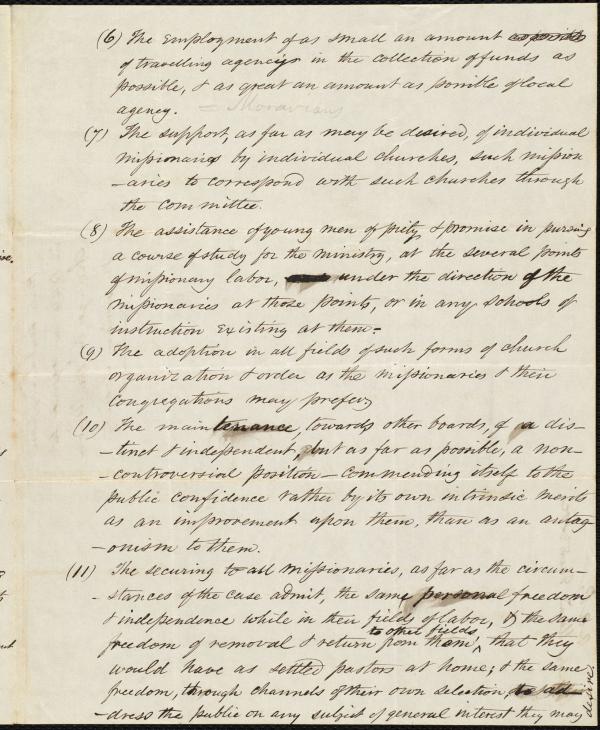 (6) The employment of as small an amount as possible
of travelling agencies in the collection of funds as
possible, & as great an amount as possible of local
agency. = Moravians
(7) The support, as far as may be desired, of individual
missionaries by individual churches, such mission
-aries to correspond with such churches through
the committee.
(8) The assistance of young men of piety & promise in pursuing
a course of study for the ministry, at the several points
of missionary labor, under the direction of the
missionaries at those points, or in any schools of
instruction existing at them-
(9) The adoption in all fields of such forms of church
organization & order as the missionaries & their
congregations may prefer,
(10) The maintenance, towards other boards, of a dis-
-tinct & independent, but as far as possible, a non-
-controversial position - commending itself to the
public confidence rather by its own intrinsic merits
as an improvement upon them, than as an antag
-onism to them.
(11) The securing to all missionaries, as far as the circum-
-stances of the case admit, the same personal freedom
& independence while in their fields of labor, & the same
to other fields
freedom of removal & return from them, ^ that they
would have as settled pastors at home; & the same
freedom, through channels of their own selection, to ad-
-dress the public on any subject of general interest they may
desire.